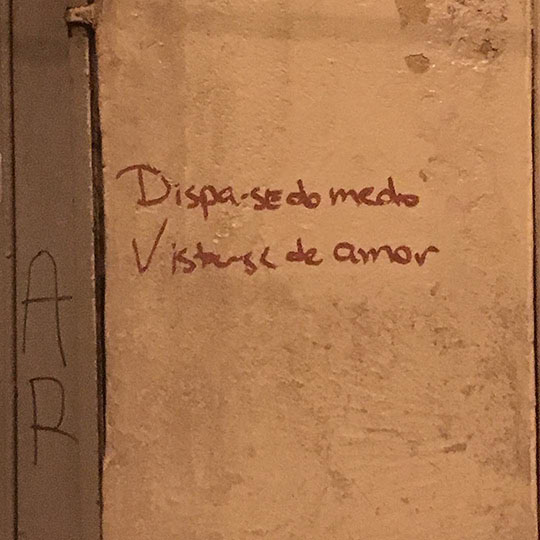 Dispa-se do medo
Vista-se de amor
A
R